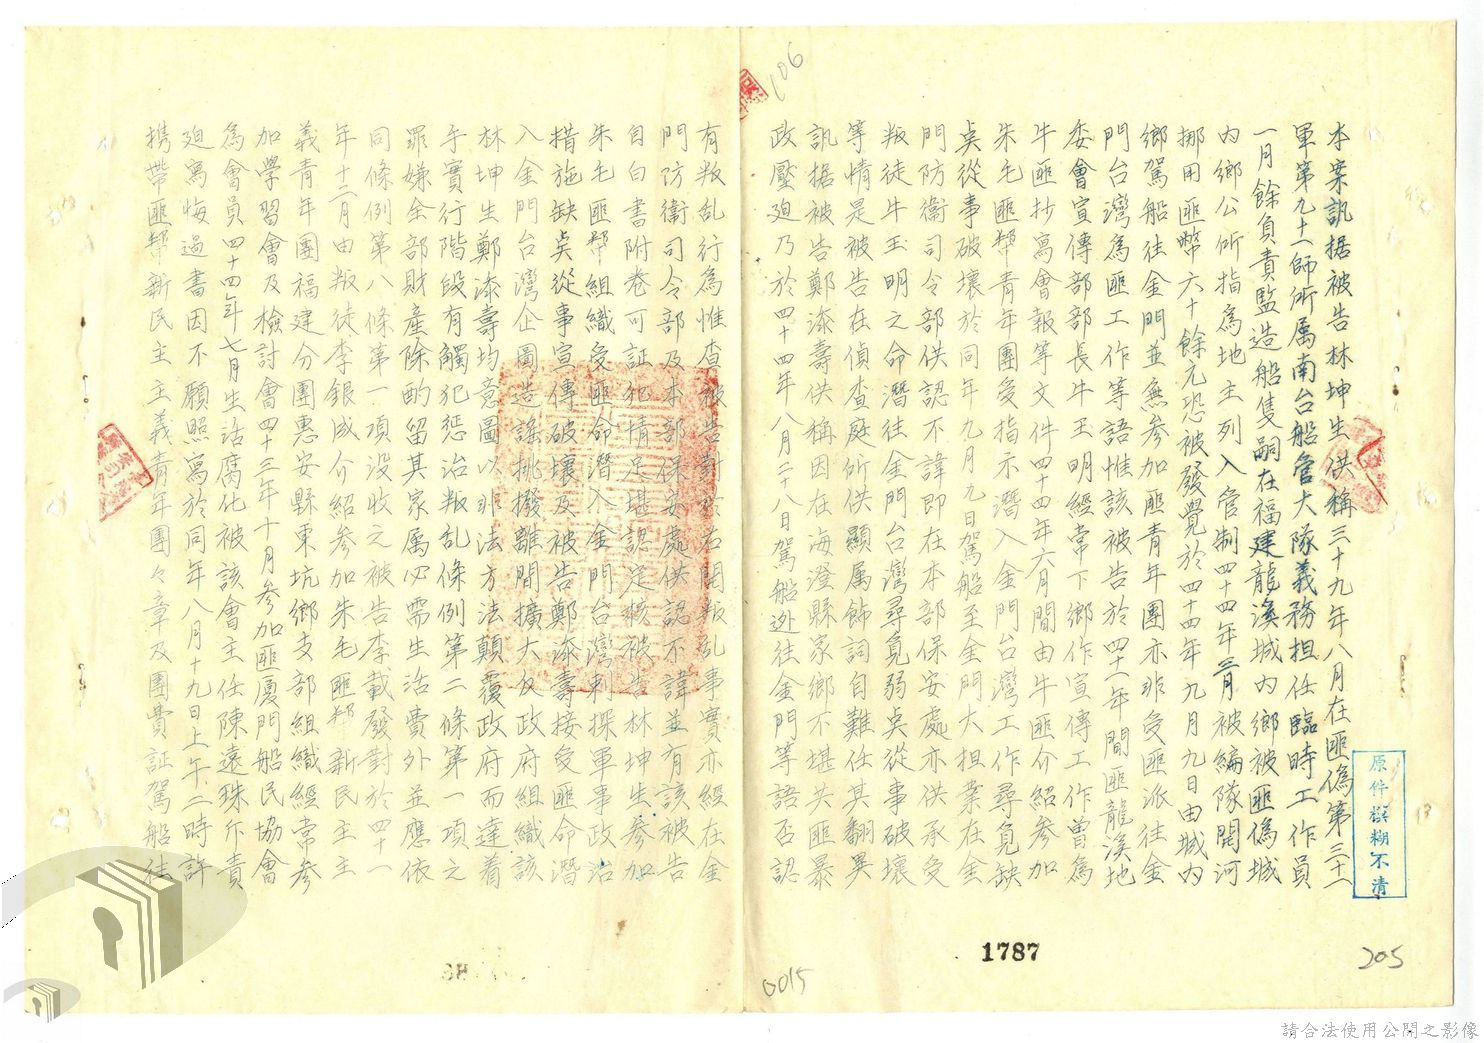 本案訊据被告林坤生供稱三十九年八月在匪偽第三十一
軍第九十一師所属南台船管大隊義務担任臨時工作員
一月餘負責監造船隻嗣在福建龍溪城內鄉被匪偽城
內鄉公所指為地主列入管制四十四年三月被編隊開河
挪用匪幣六十餘元恐被發覺於四十四年九月九日由城內
鄉駕船往金門並無參加匪青年團亦非受匪派往金
門台灣為匪工作等語惟該被告於四十一年間匪龍溪地
委會宣傳部部長牛玉明經常下鄉作宣傳工作曾為
牛匪抄寫會報等文件四十四年六月間由牛匪介紹參加
朱毛匪幫青年團受指示潛入金門台灣工作尋覓缺
奌從事破壞於同年九月九日駕船至金門大担業在金
門防衛司令部供認不諱即在本部保安處亦供承受
叛徒牛玉明之命潛往金門台灣尋覓弱奌從事破壞
等情是被告在偵查庭所供顯属飾詞自難任其翻異
訊据被告鄭添壽供稱因在海澄縣家鄉不堪共匪暴
政壓廹乃於四十四年八月二十八日駕船逃往金門等語否認
有叛乱行為惟查被告對於右開叛乱事實亦經在金
門防衛司令部及本部保安處供認不諱並有該被告
自白書附卷可証犯情足堪認定核被告林坤生參加
朱毛匪幫組織受匪命潛入金門台灣刺探軍事政治
措施缺奌從事宣傳破壞及被告鄭添壽接受匪命潛
入金門台灣企圖造謠挑撥離間擴大反政府組織該
林坤生鄭添壽均意圖以非法方法顛覆政府而達着
手實行階段有觸犯惩治叛乱條例第二條第一項之
罪嫌全部財產除酌留其家属必需生活費外並應依
同條例第八條第一項沒收之被告李載發對於四十一
年十二月由叛徒李銀成介紹參加朱毛匪幫新民主主
義青年團福建分團惠安縣東坑鄉支部組織經常參
加學習會及檢討會四十三年十月參加匪廈門船民協會
為會員四十四年七月生活腐化被該會主任陳遠珠斥責
廹寫悔過書因不願照寫於同年八月十九日上午二時許
携帶匪幫新民主主義青年團々章及團費証駕船往
原件模糊不清
106
1787
0015
205
請合法使用公開之影像